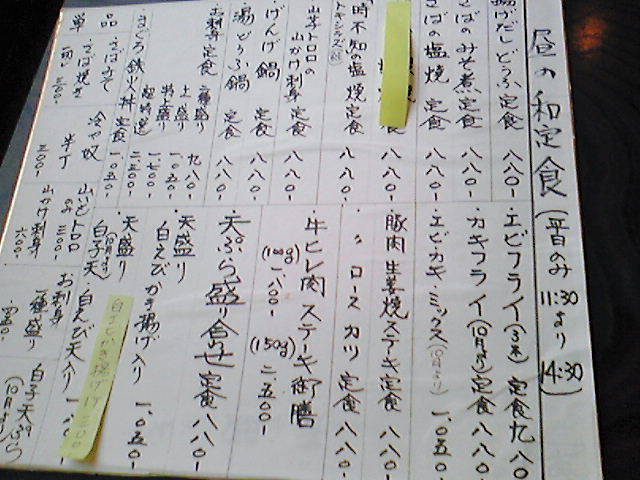 昼の和定食(平日のみ 11:30より 14:30)
揚げだしどうふ定食 八八〇-
さばのみそ煮定食 八八〇-
さばの塩焼 定食 八八〇-
八八〇-
時不知の塩焼定食 八八〇-
トキシラズ
山芋トロロの山かけ刺身 定食 八八〇-
げんげ鍋 定食 八八〇-
湯どうふ鍋 定食 八八〇-
お刺身定食 二種盛り 九八〇-
上盛り 一、〇五〇-
特上盛り
まぐろ鉄火丼定食 一、〇五〇-
エビフライ(3本)定食 九八〇
カキフライ(10月より)定食 八八〇-
エビカキミックス(10月より) 一、〇五〇-
豚肉生姜焼ステーキ定食 八八〇-
〃 ロースカツ 定食 八八〇-
牛ヒレ肉ステーキ御膳
(100g) 一、八〇〇-
(150g) 二、五〇〇-
天ぷら盛り合せ定食 八八〇-
天盛り 白えびかき揚げ入り 一、〇五〇-
天盛り (10月より) 白子天、白えび天入り
単品
さば焼き
冷や奴 半丁 三〇〇-
山いもトロロのみ 三〇〇-
山かけ刺身 六〇〇-
お刺身 二種盛り
白子天ぷら(10月より)
白子とかき揚げ